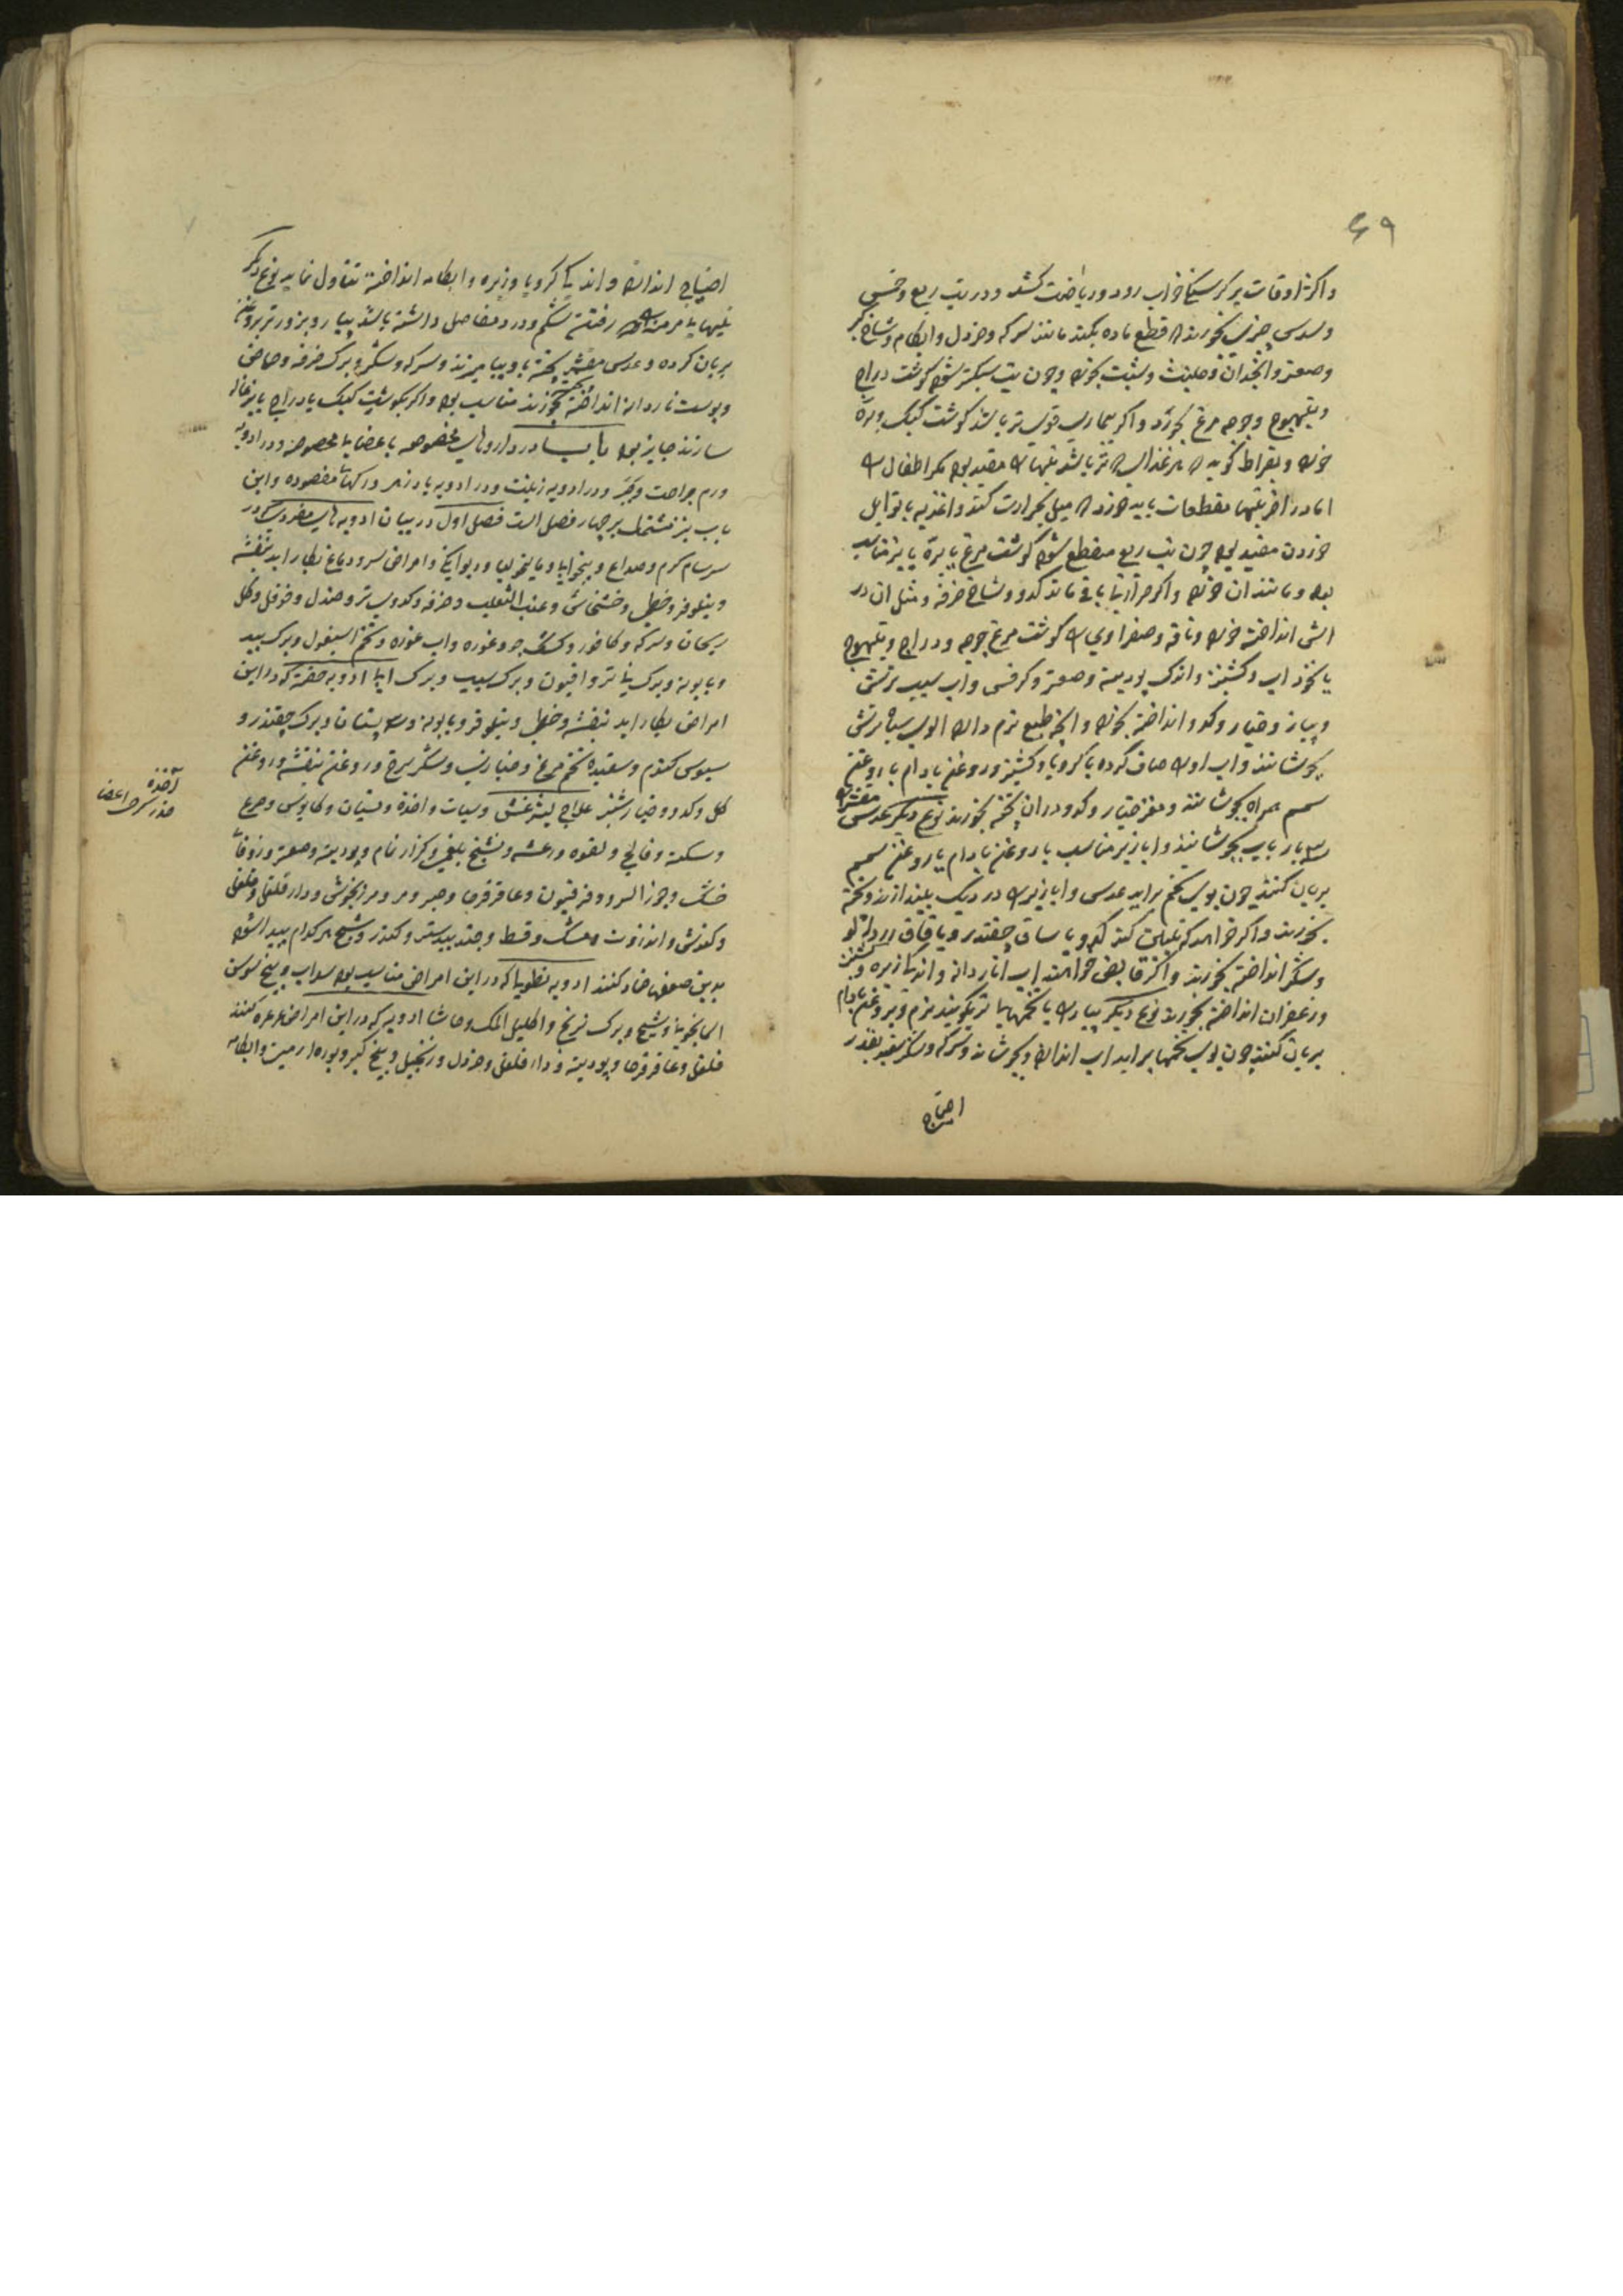 ۶۹
و اکثر اوقات بر گرسنگی خواب رود و ریاضت کشد و در تب ربع و خمس
و سدس چیزی خورند که قطع ماده بکند مانند سرکه و خردل و ابکام و شاخ کبر
و صعتر و انجدان و حلتیت و شبت بخورد و چون تب سبکتر شود گوشت دراج
و تیهوج و جوجه مرغ بخورد و اگر بیماری قوی تر باشد گوشت کبک و بره
خورد و بقراط گوید که هر غذایی که تر باشد تبها را مفید بود مگر اطفال را
اما در اخر تبها مقطعات باید خورد که میل بحرارت کند و اغذیه با توابل
خوردن مفید بود چون تب ربع منقطع شود گوشت مرغ یا بره یا بز مناسب
بود و مانند ان خورد و اگر حرارتها باقی ماند کدو و شاخ خرفه و مثل ان در
اش انداخته خورد و ناقه و صفراوی را گوشت مرغ جوجه و دراج و تیهوج
با نخود اب و کشنیز و اندک پودینه و صعتر و کرفس و اب سیب ترش
و پیاز و خیار و کدو انداخته بخورد و انچه طبع نرم دارد الوی سیاه ترش
بجوشانند و اب او را صاف کرده با کرویا و کشنیز و روغن بادام یا روغن
سمسم همراه بجوشانند و مغز خیار و کدو در ان پخته بخورند نوع دیگر عدس مقشر را
سه بار باب بجوشانند و ابازیر مناسب با روغن بادام یا روغن سمسم
بریان کنند چون بوی تخم براید عدس و ابازیر را در دیگ بیندازند و پخته
بخورند و اگر خواهد که تلیین کند کدو یا ساق چقندر و یا قاق زردالو
و شکر انداخته بخورند و اگر قابض خواهند اب انار دانه و اندکی زیره و کشنیز
و زعفران انداخته بخورند نوع دیگر پیاز را با تخمهای تر بکوبند نرم و بروغن بادام
بریان کنند چون بوی تخمها براید اب اندازند و بجوشانند و سرکه و شکر سفید بقدر
احتیاج
احتیاج اندازند و اندکی کرویا و زیره و ابکامه انداخته تناول نمایند نوع دیگر
تبهای مزمنه را که رفتن شکم و درد مفاصل داشته باشد پیاز و بزور تر بروغن
بریان کرده و عدس مقشر پخته باو بیامیزند و سرکه و شکر و برک خرفه و حماض
و پوست ناردانه انداخته بخورند مناسب بود و اگر بگوشت کبک یا دراج یا بزغاله
سازند جایز بود باب در داروهای مخصوصه باعضای مخصوصه و در ادویه
ورم جراحت و جبر و در ادویه زینت و در ادویه بادزهر و رگهای مفصوده و این
باب نیز مشتمل بر چهار فصل است فصل اول در بیان ادویه های مفرد که در
سرسام گرم و صداع و بیخوابی و مالیخولیا و دیوانگی و امراض سر و دماغ بکار اید بنفشه
و نیلوفر و خطمی و خشخاش و عنب الثعلب و خرفه و کدوی تر و صندل و فوفل و گل
ریحان و سرکه و کافور و کشک جو و غوره و اب غوره و تخم اسبغول و برک بید
و بابونه و برک بنا تر و افیون و برک سیب و برک ادویه حقنه که در این
امراض بکار اید بنفشه و خطمی و نیلوفر و بابونه و سپستان و برک چقندر و
سبوس گندم و سفیده تخم مرغ و خیارین و شکر سرخ و روغن بنفشه و روغن
گل و کدو و خیارشنبر علاج لیثرغش و سبات و اخذه و نسیان و کابوس و صرع
و سکته و فالج و لقوه و رعشه و تشنج بلغمی و کزاز نمام و پودینه و صعتر و زوفای
خشک و جوز السرو و فرفیون و عاقرقرحا و صبر و مر و مرزنجوش و دارفلفل و فلفل
و کندش و انزروت و مشک و قسط و جندبیدستر و کندر و شیح هر کدام پیدا شود
بدین صنعها ضماد کنند ادویه نطولی که در این امراض مناسب بود سداب و بیخ سوسن
اسمانجونی و شیح و برک ترنج و اکلیل الملک و حاشا ادویه که در این امراض غرغره کنند
فلفل و عاقرقرحا و پودینه و دارفلفل و خردل و زنجبیل و بیخ کبر و بوره ارمنی و ابکامه
آخذه
خدر سر اعضا